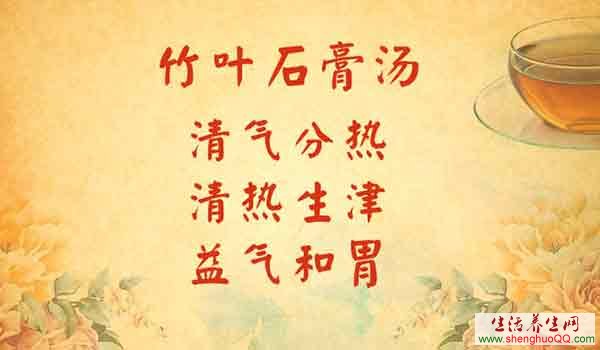 竹叶石膏汤
清气分热
清热生津
益气和胃
生活养生网
www.shenghuoQQ.com